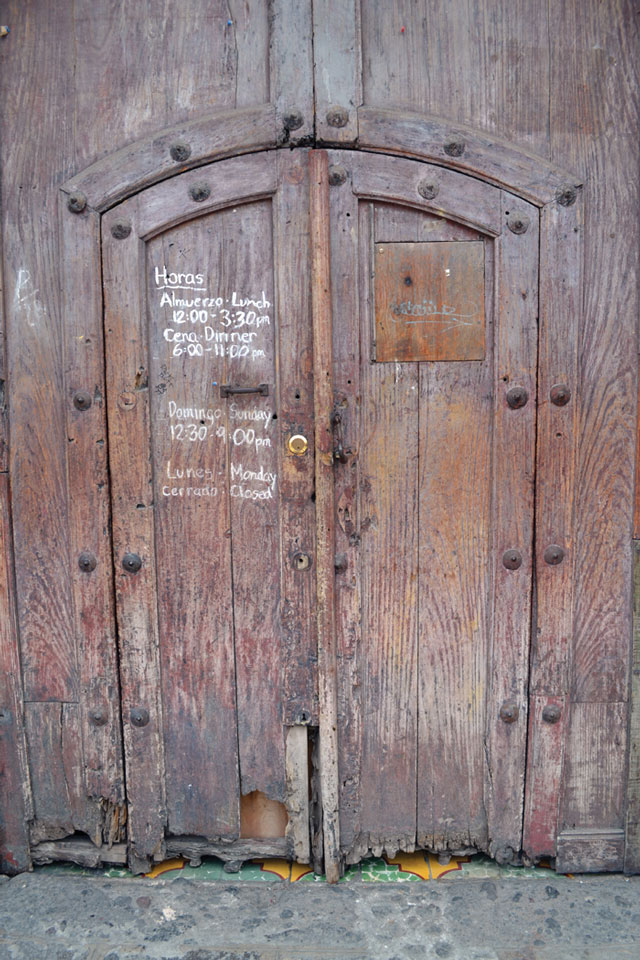 Horas
Almuerzo · Lunch
12:00 - 3:30pm
Cena · Dinner
6:00 - 11:00pm
Domingo · Sunday
12:30 - 9:00pm
Lunes · Monday
cerrado · Closed